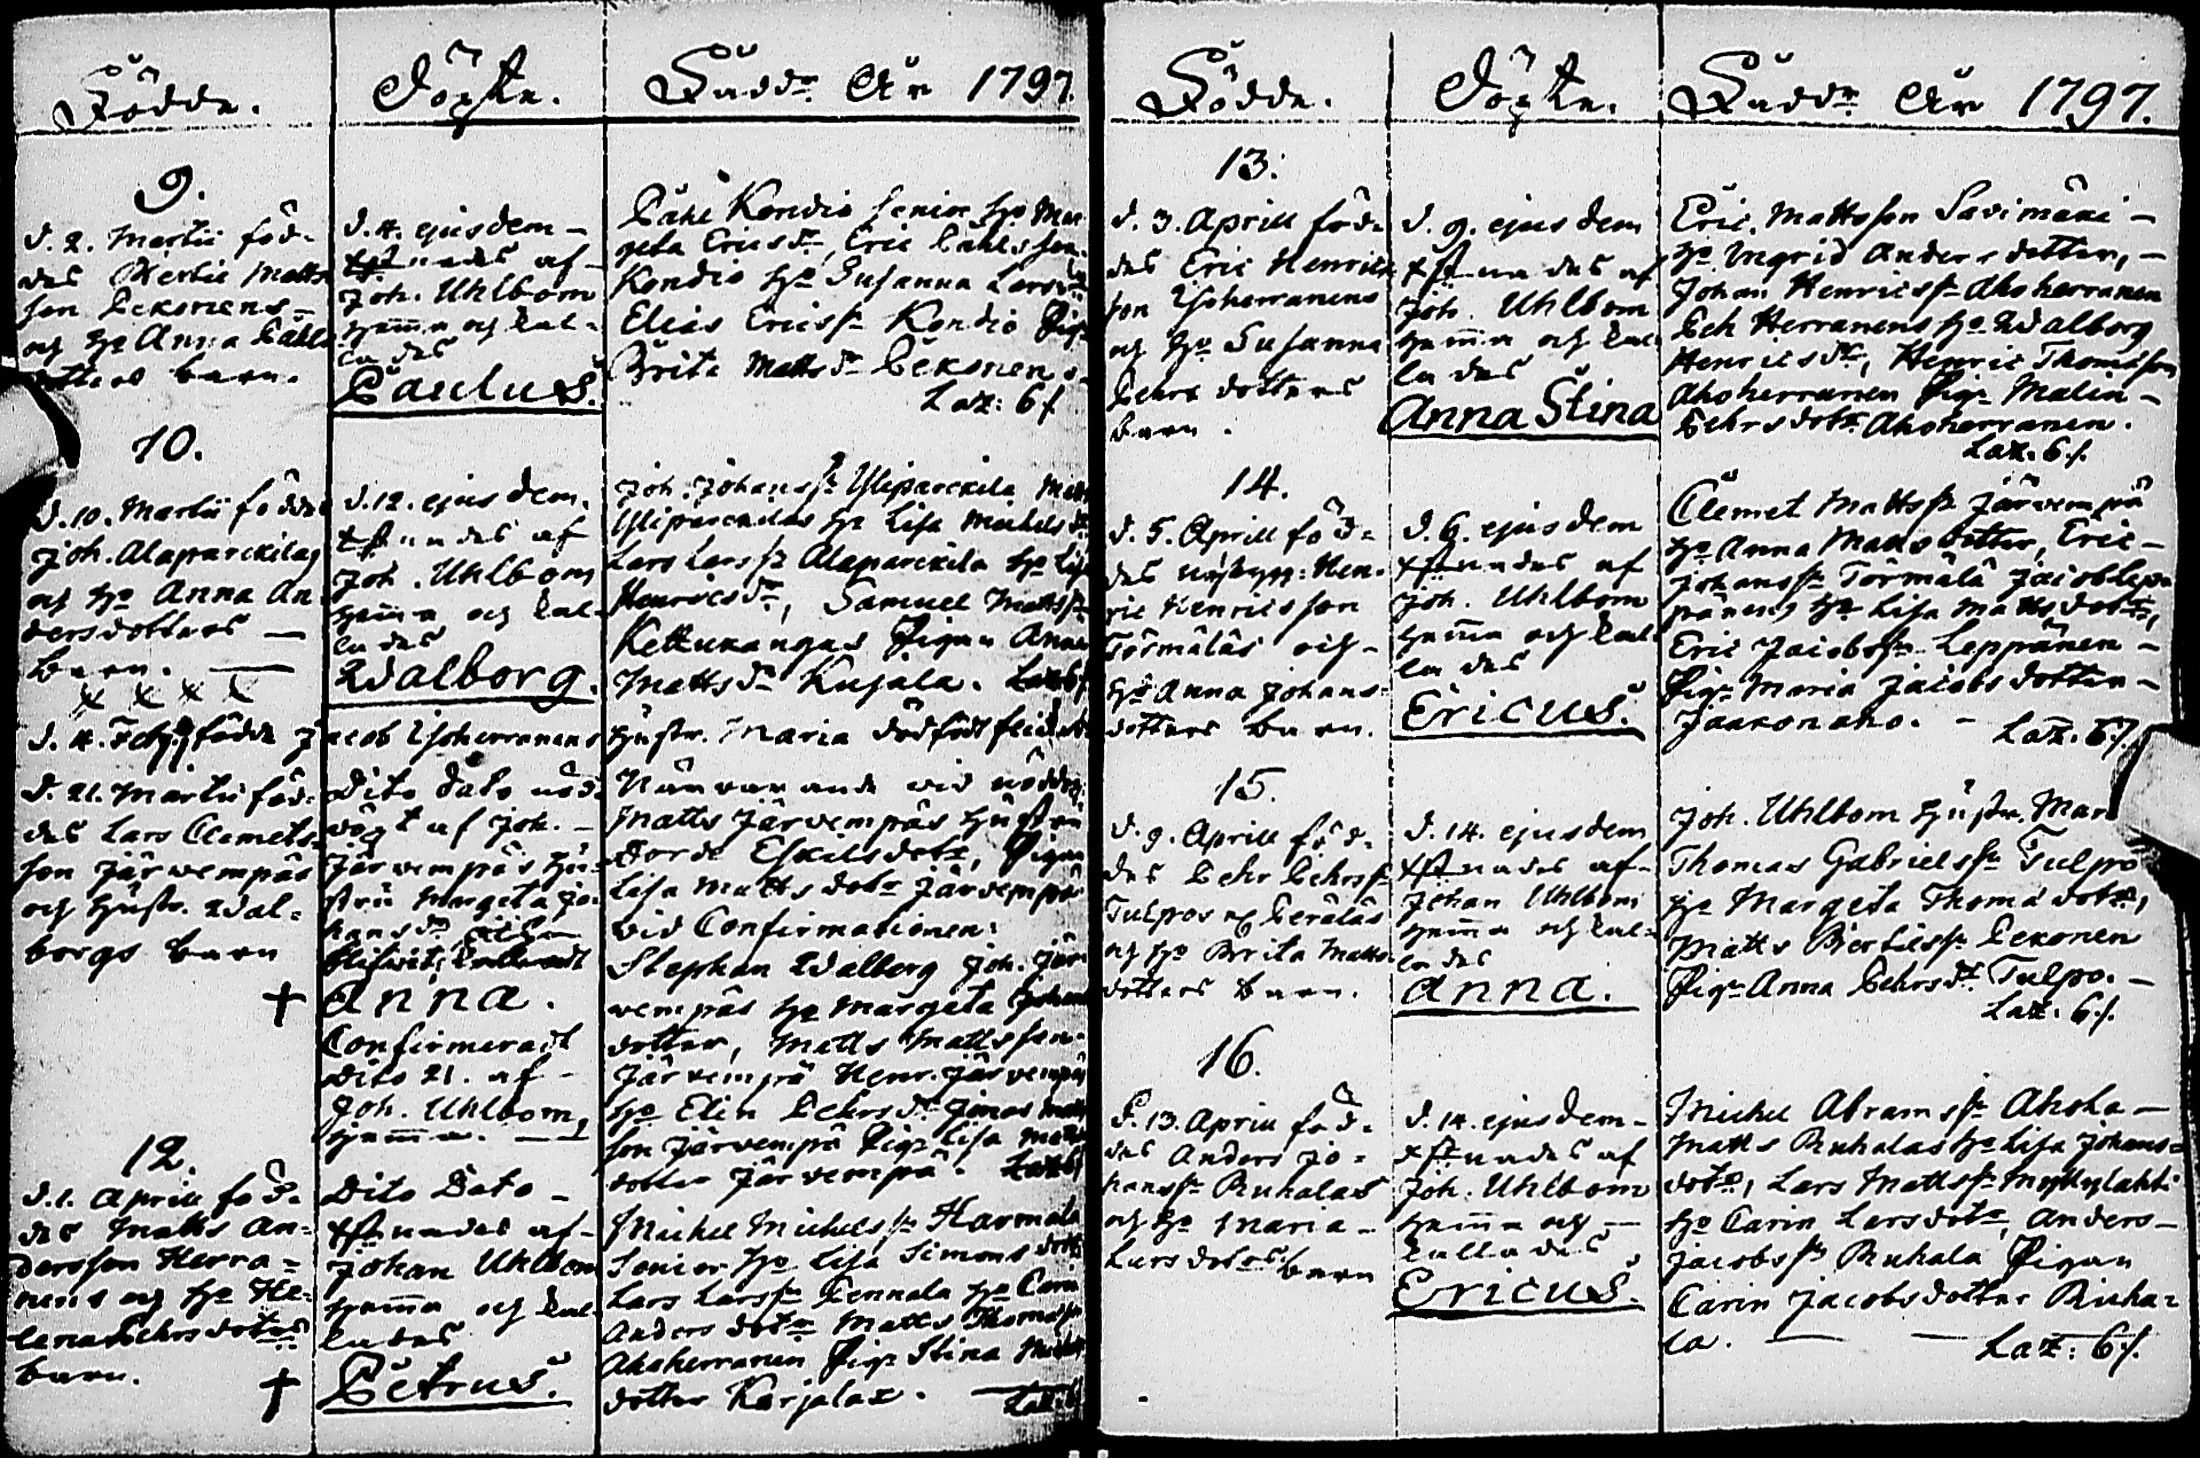 Födde.
Döpte.
Fadd. År 1797.
9.
d. 2. Martii föd-
des Bertil Matts
son Pekonens
och H. Anna Påhls
dotters barn.
d. 4. ejusdem
Xstnades af
Joh. Uhlbom
hemma och kal-
lades
Paulus.
Påhl Kondio senior H. Mar
geta Ericsdr, Eric Påhlsson
Kondio H. Susanna Larsdr
Elias Ericss. Kondio Pig.
Brita Mattsdr Pekonen
Lax: 6 f
10.
d. 10. Martii födde
Joh. Alaparckilas
och H. Anna An
dersdotters —
barn. —
d. 12. ejusdem.
Xstnades af
Joh. Uhlbom
hemma och kal-
lades
Walborg.
Joh. Johanss. Yliparckila
Yliparckilas H. Lisa Michelsdr
Lars Larss. Alaparckila H. Lisa
Henricsdr, Samuel Mattss.
Kettukangas Pigan Anna
Mattsdr Kujala.
X X X X
d. 4. födde Jacob Ahoherranens Hustr. Maria dödfödt
d. 21. Martii föd-
des Lars Clemets-
son Järvempäs
och Hustr. Wal-
borgs barn
†
Dito Dato nöd-
döpt af Joh. —
Järvempäs Hu-
stru Margeta Jo-
hansdr
Anna.
Confirmeradt
Dito 21. af
Joh. Uhlbom,
hemma. —
Närvarande vid nöddop:
Matts Järvempäs Hustru
Dorde Eskilsdotr, Pigan
Lisa Mattsdotr Järvempä
vid Confirmationen:
Stephan Walberg Joh. Jär
vempäs H. Margeta Johans
dotter, Matts Mattsson
Järvempä Henr. Järvempä
H. Elin Pehrsdr Matts
son Järvempä Pig. Lisa Matts
dotter Järvempä.
12.
d. 1. Aprill föd-
des Matts An-
dersson Herra-
nens och H. He-
lena Pehrsdotrs
barn.
†
Dito Dato —
Xstnades af
Johan Uhlbom
hemma och kal-
lades
Petrus.
Michel Michelss. Harmala
Senior H. Lisa Simonsdotr
Lars Larss. Pennala H. Carin
Andersdotr Matts Thomass.
Ahoherranen Pig. Stina Michels
dotter Karjalax.
Födde.
Döpte.
Fadd. År 1797.
13.
d. 3. Aprill föd-
des Eric Henrics
son Ahoherranens
och H. Susanna
Pehrsdotters
barn.
d. 9. ejusdem
Xstnades af
Joh. Uhlbom
hemma och kal-
lades
Anna Stina
Eric Mattsson Savimäki —
H. Ingrid Andersdotter, —
Johan Henricss. Ahoherranen
Peh Herranens H. Walborg
Henricsdr, Henric Thomasson
Ahoherranen Pig. Malin —
Pehrsdotr Ahoherranen.
Lax. 6 f.
14.
d. 5. Aprill föd-
des Nybygg: Hen-
ric Henricsson
Törmäläs och
H. Anna Johans-
dotters barn.
d. 6. ejusdem
Xstnades af
Joh. Uhlbom
hemma och kal-
lades
Ericus.
Clemet Mattss. Järvempä
H. Anna Mattsdotter, Eric —
Johanss. Törmälä Jacob Lep-
pänens H. Lisa Mattsdotr,
Eric Jacobss. Leppänen —
Pig. Maria Jacobsdotter —
Jaakonaho. — Lax. 6 f.
15.
d. 9. Aprill föd-
des Pehr Pehrss.
Tulpos Peräläs
och H. Brita Matts
dotters barn.
d. 14. ejusdem
Xstnades af
Johan Uhlbom
hemma och kal-
lades
Anna.
Joh. Uhlbom Hustr. Mar
Thomas Gabrielss. Tulpo
H. Margeta Thomædotr,
Matts Bertilss. Pekonen
Pig. Anna Pehrsdr. Tulpo. —
Lax. 6 f.
16.
d. 13. Aprill föd-
des Anders Jo-
hanss. Ruhalas
och H. Maria —
Larsdotrs barn
d. 14. ejusdem —
Xstnades af
Joh. Uhlbom
hemma och —
kallades
Ericus.
Michel Abramss. Ahola —
Matts Ruhalas H. Lisa Johans-
dotr, Lars Mattss. Myllylahti
H. Carin Larsdotr, Anders —
Jacobss. Ruhala Pigan
Carin Jacobsdotter Ruha-
la. — — Lax: 6 f.